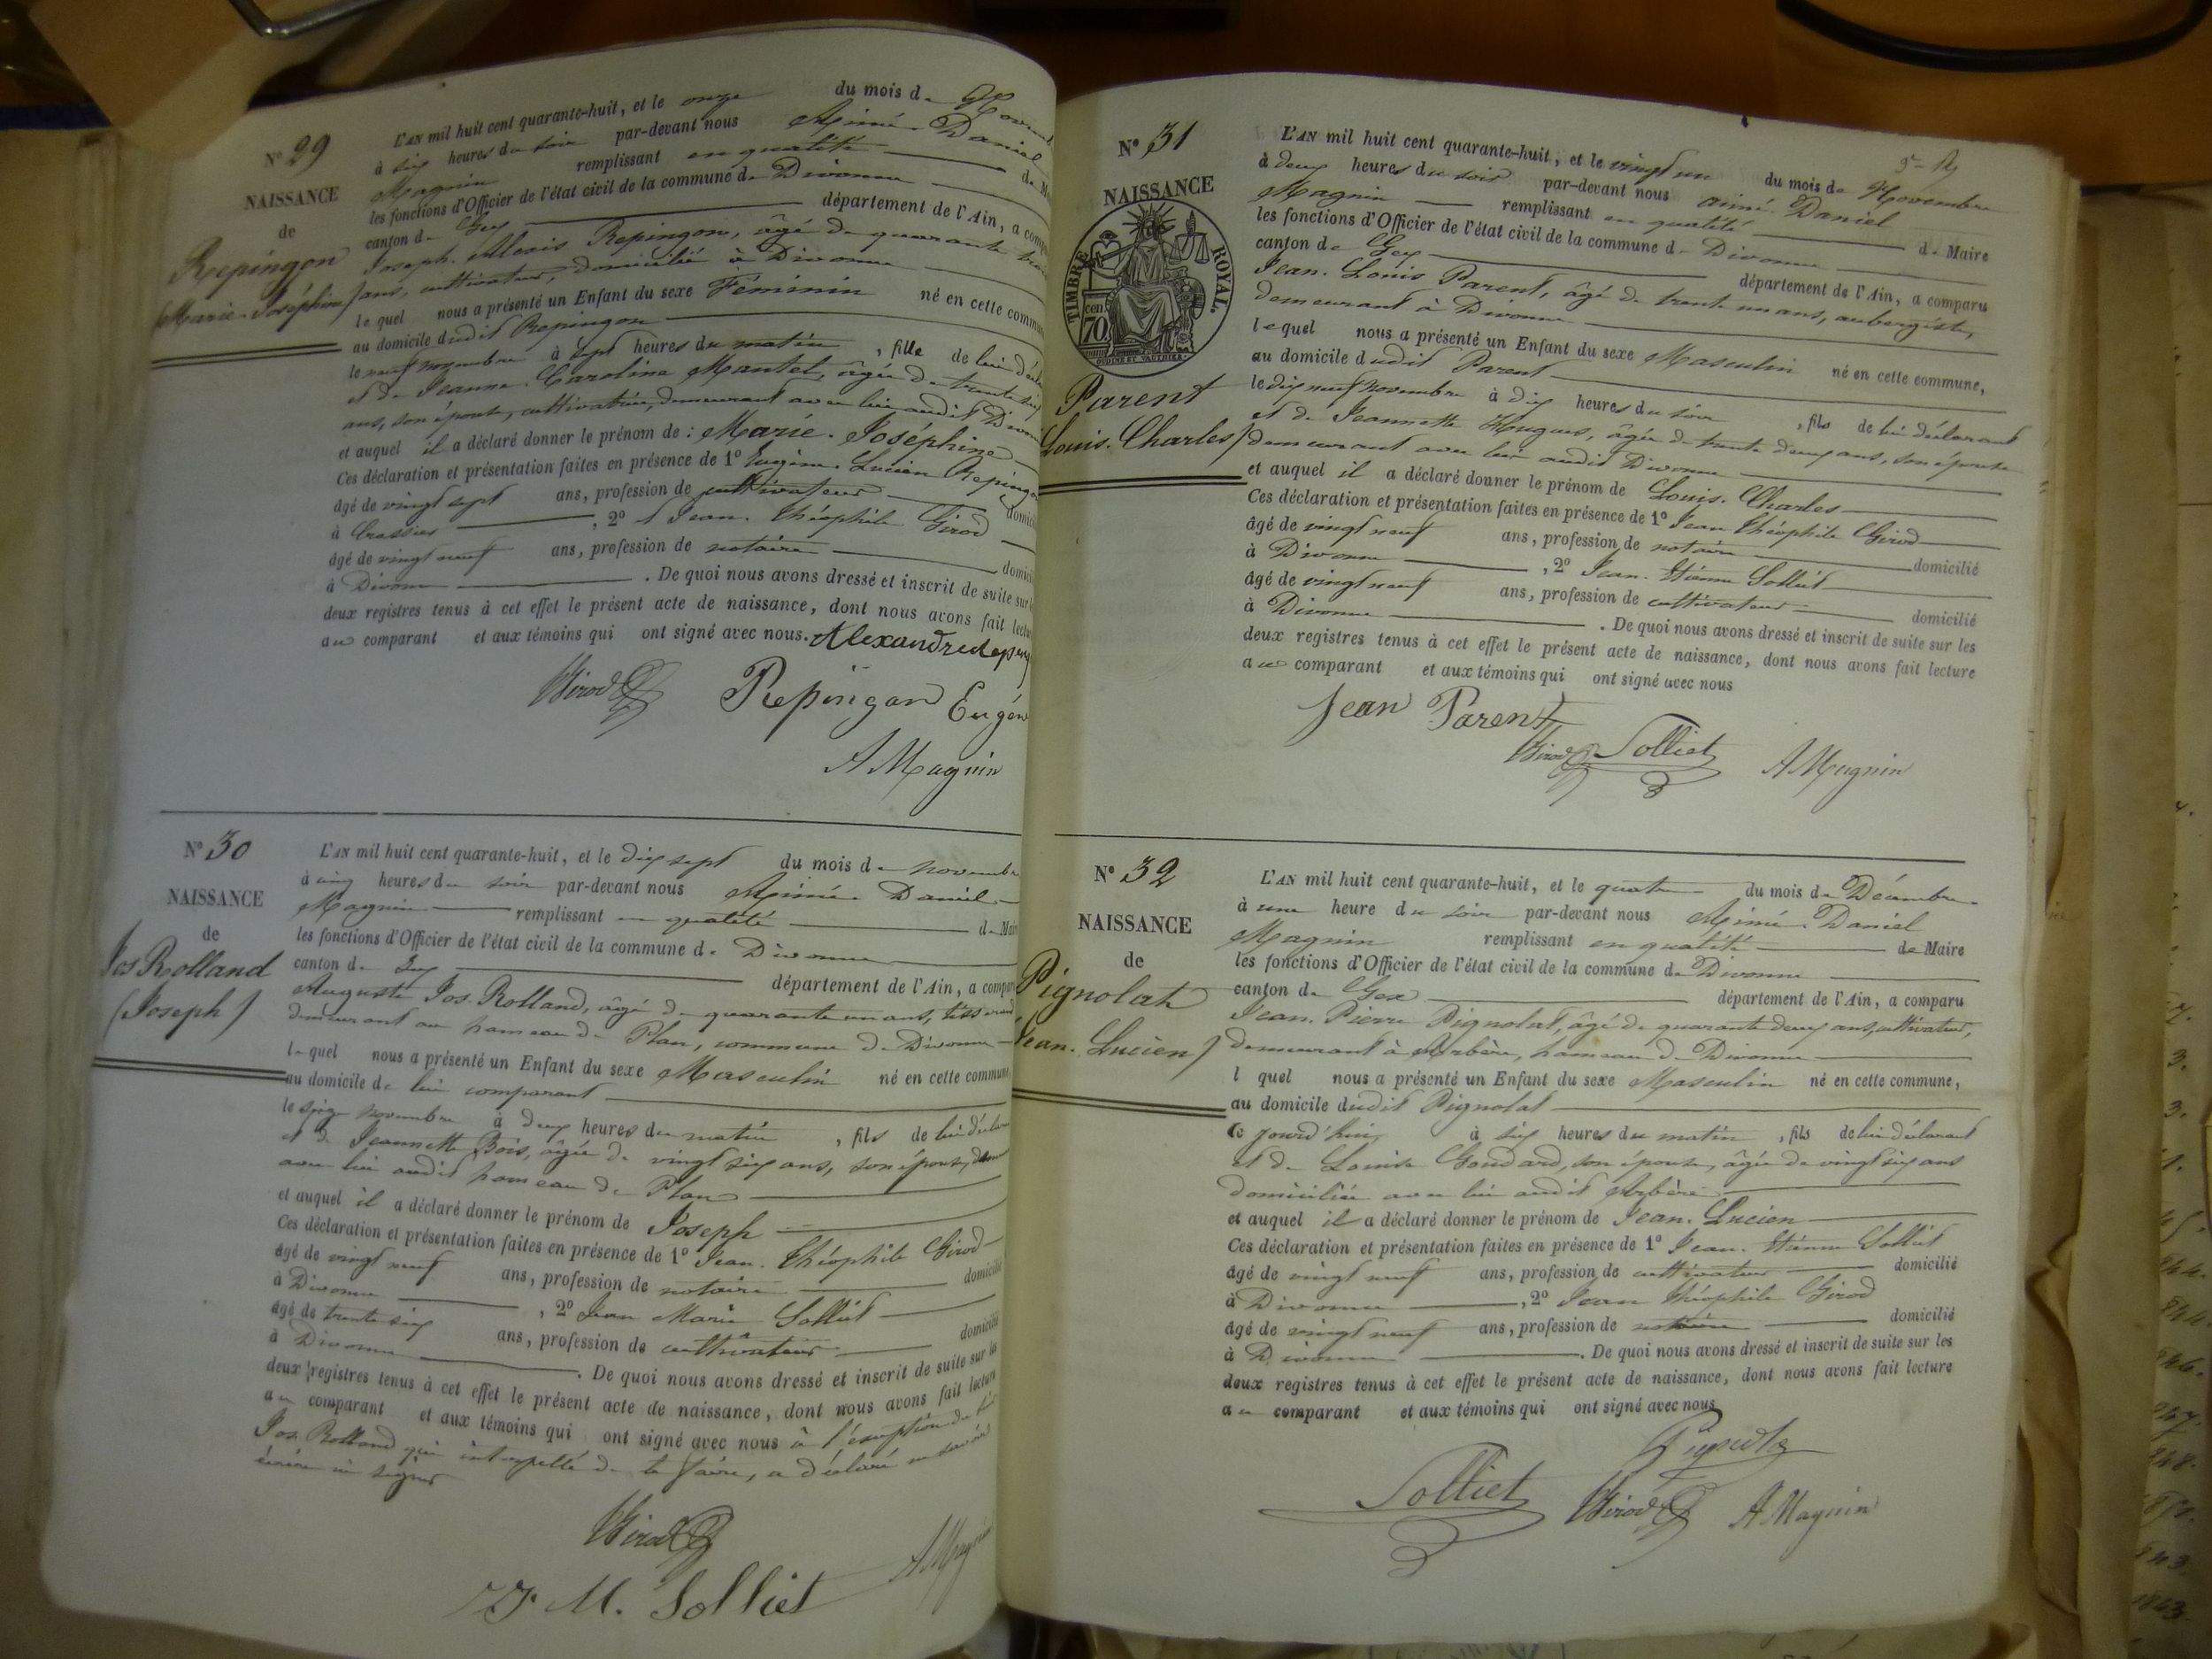 N° 29
NAISSANCE
de
Repingon
(Marie-Joséphine)
L'AN mil huit cent quarante-huit, et le onze du mois de Novembre
à six heures du soir par-devant nous Aimé Daniel
Magnin remplissant en qualité de Maire
les fonctions d'Officier de l'état civil de la commune de Divonne
canton de Gex département de l'Ain, a comparu
Joseph-Alexis Repingon, âgé de quarante trois
ans, cultivateur, domicilié à Divonne
lequel nous a présenté un Enfant du sexe Féminin né en cette commune
au domicile dudit Repingon
le neuf novembre à sept heures du matin, fille de lui déclarant
et de Jeanne-Caroline Mantel, âgée de trente six
ans, son épouse, cultivatrice, demeurant avec lui audit Divonne
et auquel il a déclaré donner le prénom de : Marie-Joséphine
Ces déclaration et présentation faites en présence de 1° Eugène-Lucien Repingon
âgé de vingt sept ans, profession de cultivateur domicilié
à Crassier, 2° Jean-Théophile Girod
âgé de vingt neuf ans, profession de notaire domicilié
à Divonne. De quoi nous avons dressé et inscrit de suite sur les
deux registres tenus à cet effet le présent acte de naissance, dont nous avons fait lecture
au comparant et aux témoins qui ont signé avec nous.
Girod Repingon Eugène
A Magnin
N° 30
NAISSANCE
de
Jos Rolland
(Joseph)
L'AN mil huit cent quarante-huit, et le dix sept du mois de novembre
à cinq heures du soir par-devant nous Aimé-Daniel
Magnin remplissant en qualité de Maire
les fonctions d'Officier de l'état civil de la commune de Divonne
canton de Gex département de l'Ain, a comparu
Auguste Jos. Rolland, âgé de quarante un ans, tisserand
demeurant au hameau de Plan, commune de Divonne
lequel nous a présenté un Enfant du sexe Masculin né en cette commune
au domicile de lui comparant
le seize novembre à deux heures du matin, fils de lui déclarant
et de Jeannette Bois, âgée de vingt six ans, son épouse, dem
avec lui audit hameau de Plan
et auquel il a déclaré donner le prénom de Joseph
Ces déclaration et présentation faites en présence de 1° Jean-Théophile Girod
âgé de vingt neuf ans, profession de notaire domicilié
à Divonne, 2° Jean Marie Solliet
âgé de trente six ans, profession de cultivateur domicilié
à Divonne. De quoi nous avons dressé et inscrit de suite sur les
deux registres tenus à cet effet le présent acte de naissance, dont nous avons fait lecture
au comparant et aux témoins qui ont signé avec nous à l'exception du
Jos. Rolland qui interpellé de le faire, a déclaré ne savoir
écrire ni signer
Girod
J. M. Solliet A Magnin
N° 31
NAISSANCE
TIMBRE ROYAL
70 cen.
Parent
Louis-Charles)
L'AN mil huit cent quarante-huit, et le vingt un du mois de Novembre
à deux heures du soir par-devant nous aimé-Daniel
Magnin remplissant en qualité de Maire
les fonctions d'Officier de l'état civil de la commune de Divonne
canton de Gex département de l'Ain, a comparu
Jean-Louis Parent, âgé de trente un ans, aubergiste,
demeurant à Divonne
lequel nous a présenté un Enfant du sexe Masculin né en cette commune,
au domicile dudit Parent
le dix neuf novembre à dix heures du soir, fils de lui déclarant
et de Jeannette Hugues, âgée de trente deux ans, son épouse
demeurant avec lui audit Divonne
et auquel il a déclaré donner le prénom de Louis-Charles
Ces déclaration et présentation faites en présence de 1° Jean Théophile Girod
âgé de vingt neuf ans, profession de notaire domicilié
à Divonne, 2° Jean-Etienne Solliet
âgé de vingt neuf ans, profession de cultivateur domicilié
à Divonne. De quoi nous avons dressé et inscrit de suite sur les
deux registres tenus à cet effet le présent acte de naissance, dont nous avons fait lecture
au comparant et aux témoins qui ont signé avec nous
Jean Parent
Girod Solliet A Magnin
N° 32
NAISSANCE
de
Pignolat
(Jean-Lucien)
L'AN mil huit cent quarante-huit, et le quatre du mois de Décembre
à une heure du soir par-devant nous Aimé-Daniel
Magnin remplissant en qualité de Maire
les fonctions d'Officier de l'état civil de la commune de Divonne
canton de Gex département de l'Ain, a comparu
Jean-Pierre Pignolat, âgé de quarante deux ans, cultivateur,
demeurant à Arbère, hameau de Divonne
l quel nous a présenté un Enfant du sexe Masculin né en cette commune,
au domicile dudit Pignolat
ce jourd'hui, à six heures du matin, fils de lui déclarant
et de Louise Goudard, son épouse, âgée de vingt six ans
domiciliée avec lui audit Arbère
et auquel il a déclaré donner le prénom de Jean-Lucien
Ces déclaration et présentation faites en présence de 1° Jean-Etienne Solliet
âgé de vingt neuf ans, profession de cultivateur domicilié
à Divonne, 2° Jean Théophile Girod
âgé de vingt neuf ans, profession de notaire domicilié
à Divonne. De quoi nous avons dressé et inscrit de suite sur les
deux registres tenus à cet effet le présent acte de naissance, dont nous avons fait lecture
au comparant et aux témoins qui ont signé avec nous
Solliet Girod A Magnin